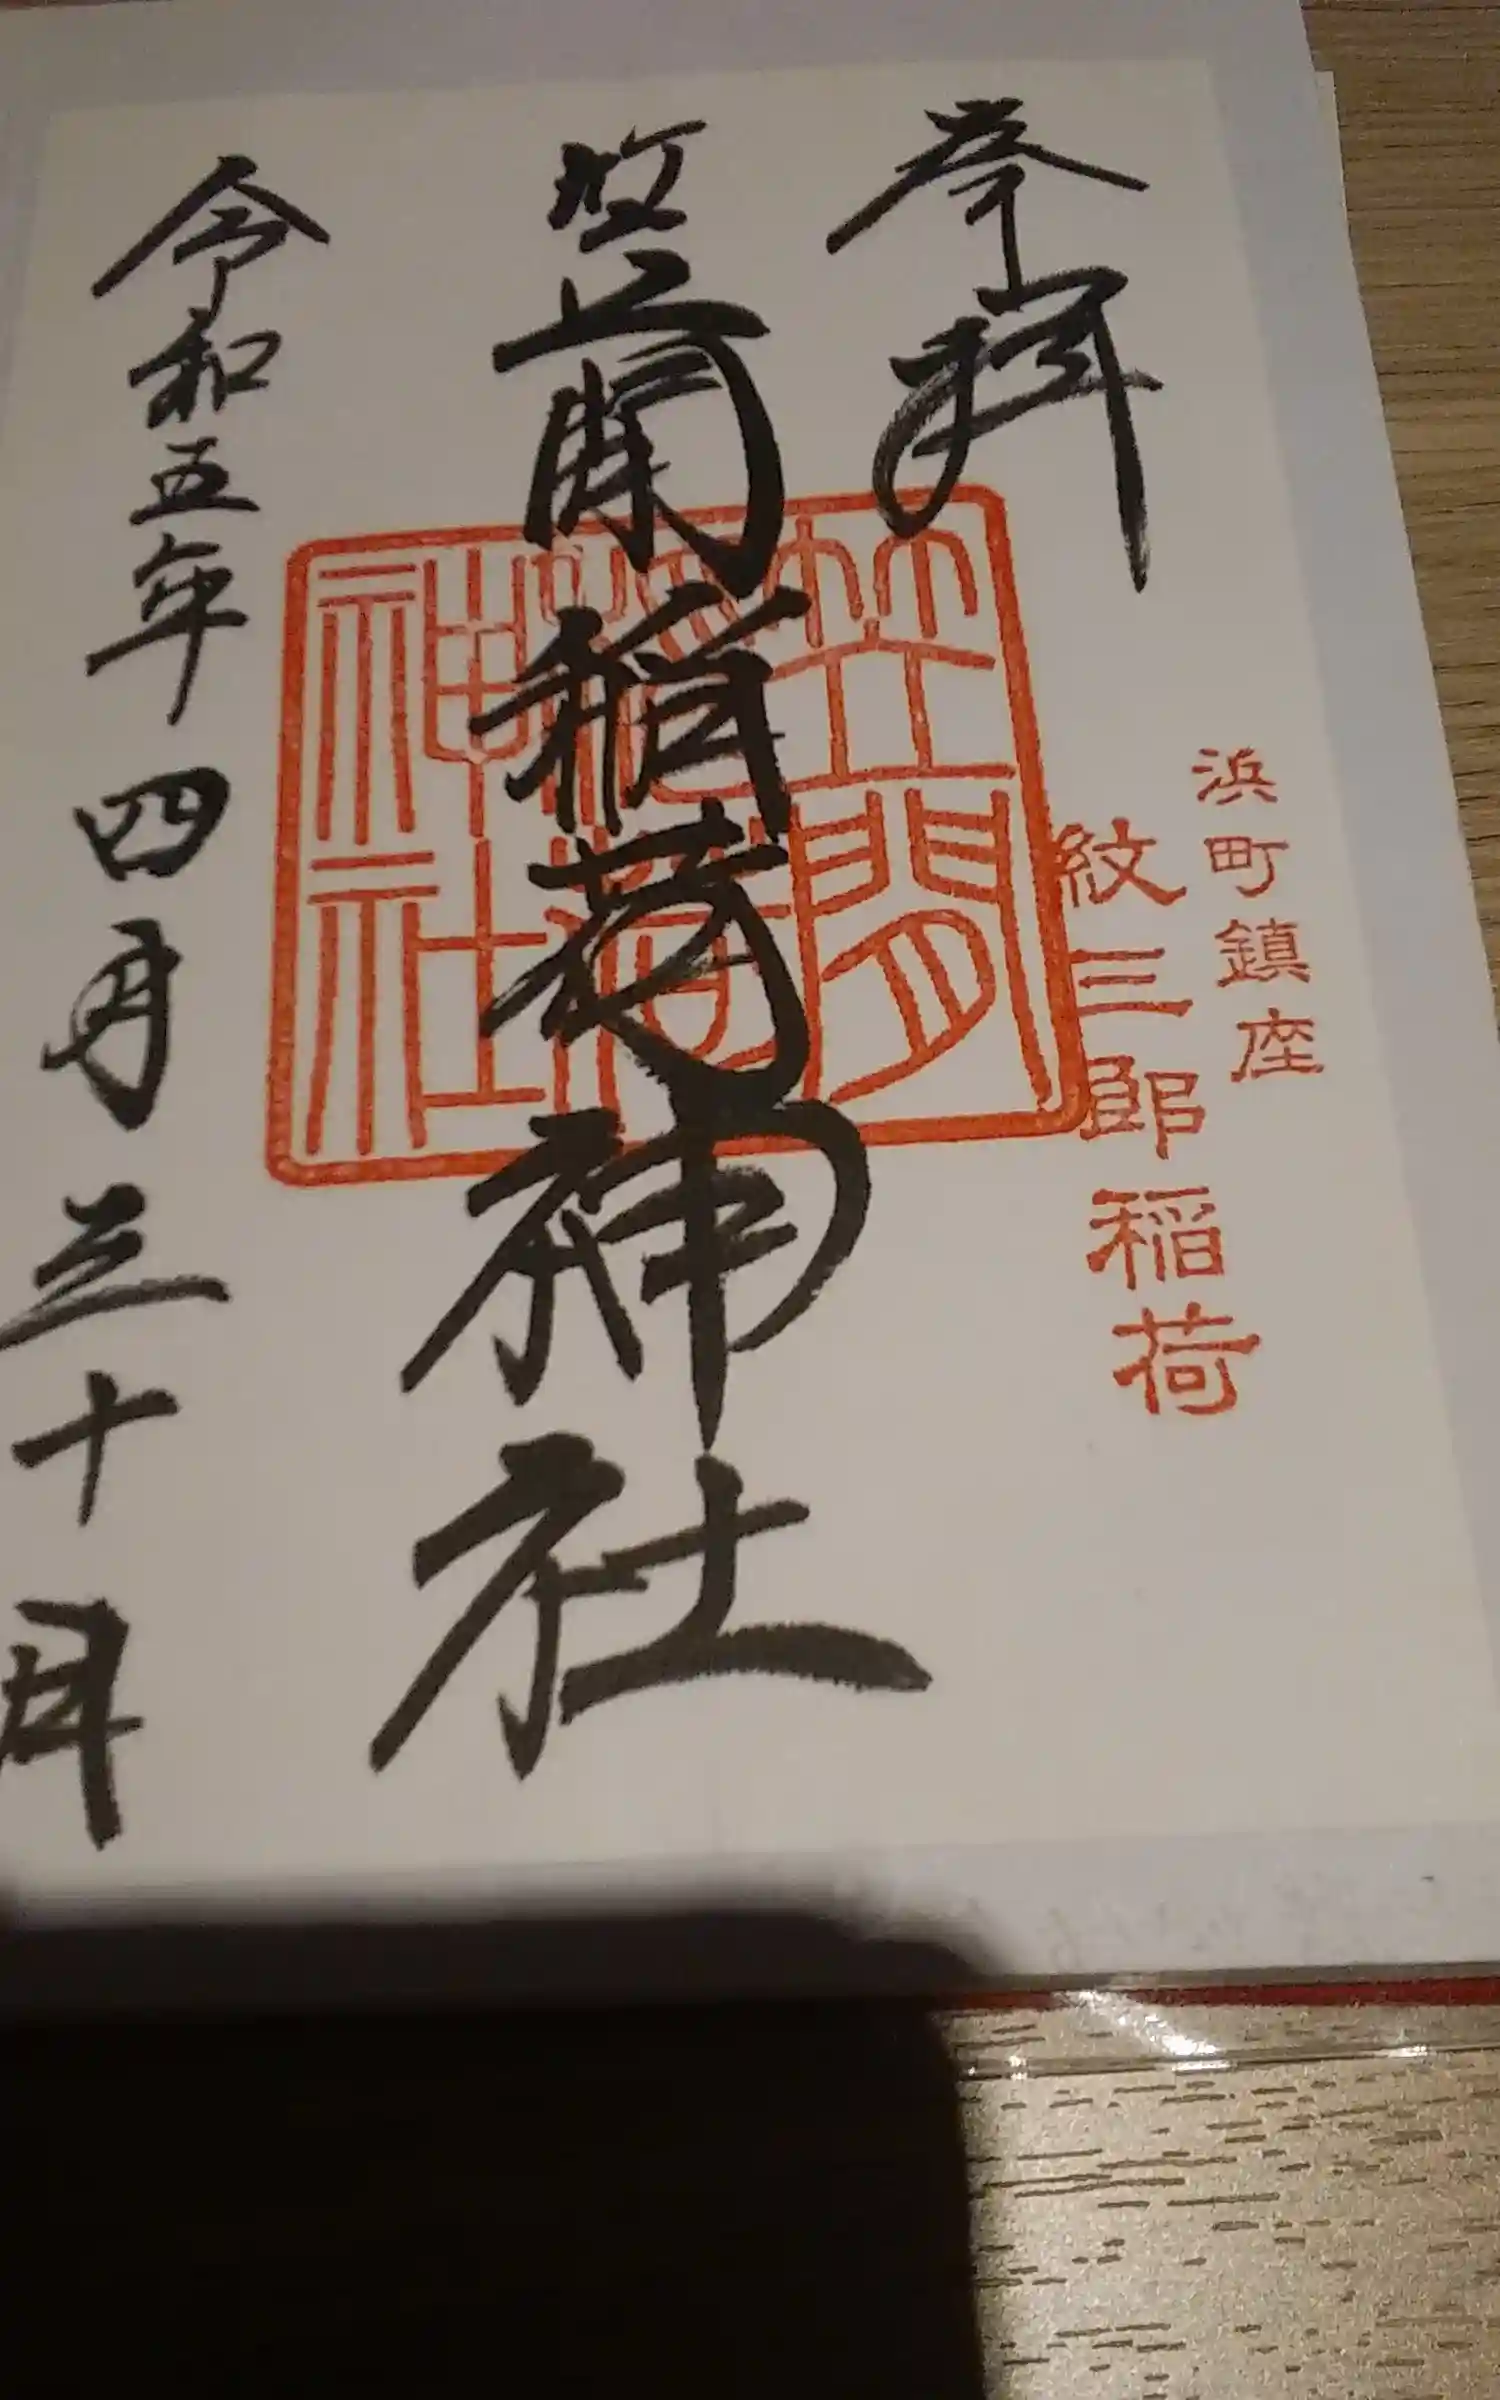 奉拝
浜町鎮座
紋三郎稲荷
笠間稲荷神社
笠間
稲荷
神社
令和五年四月三十日